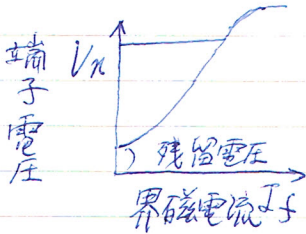 端子電圧
Vn
残留電圧
界磁電流If